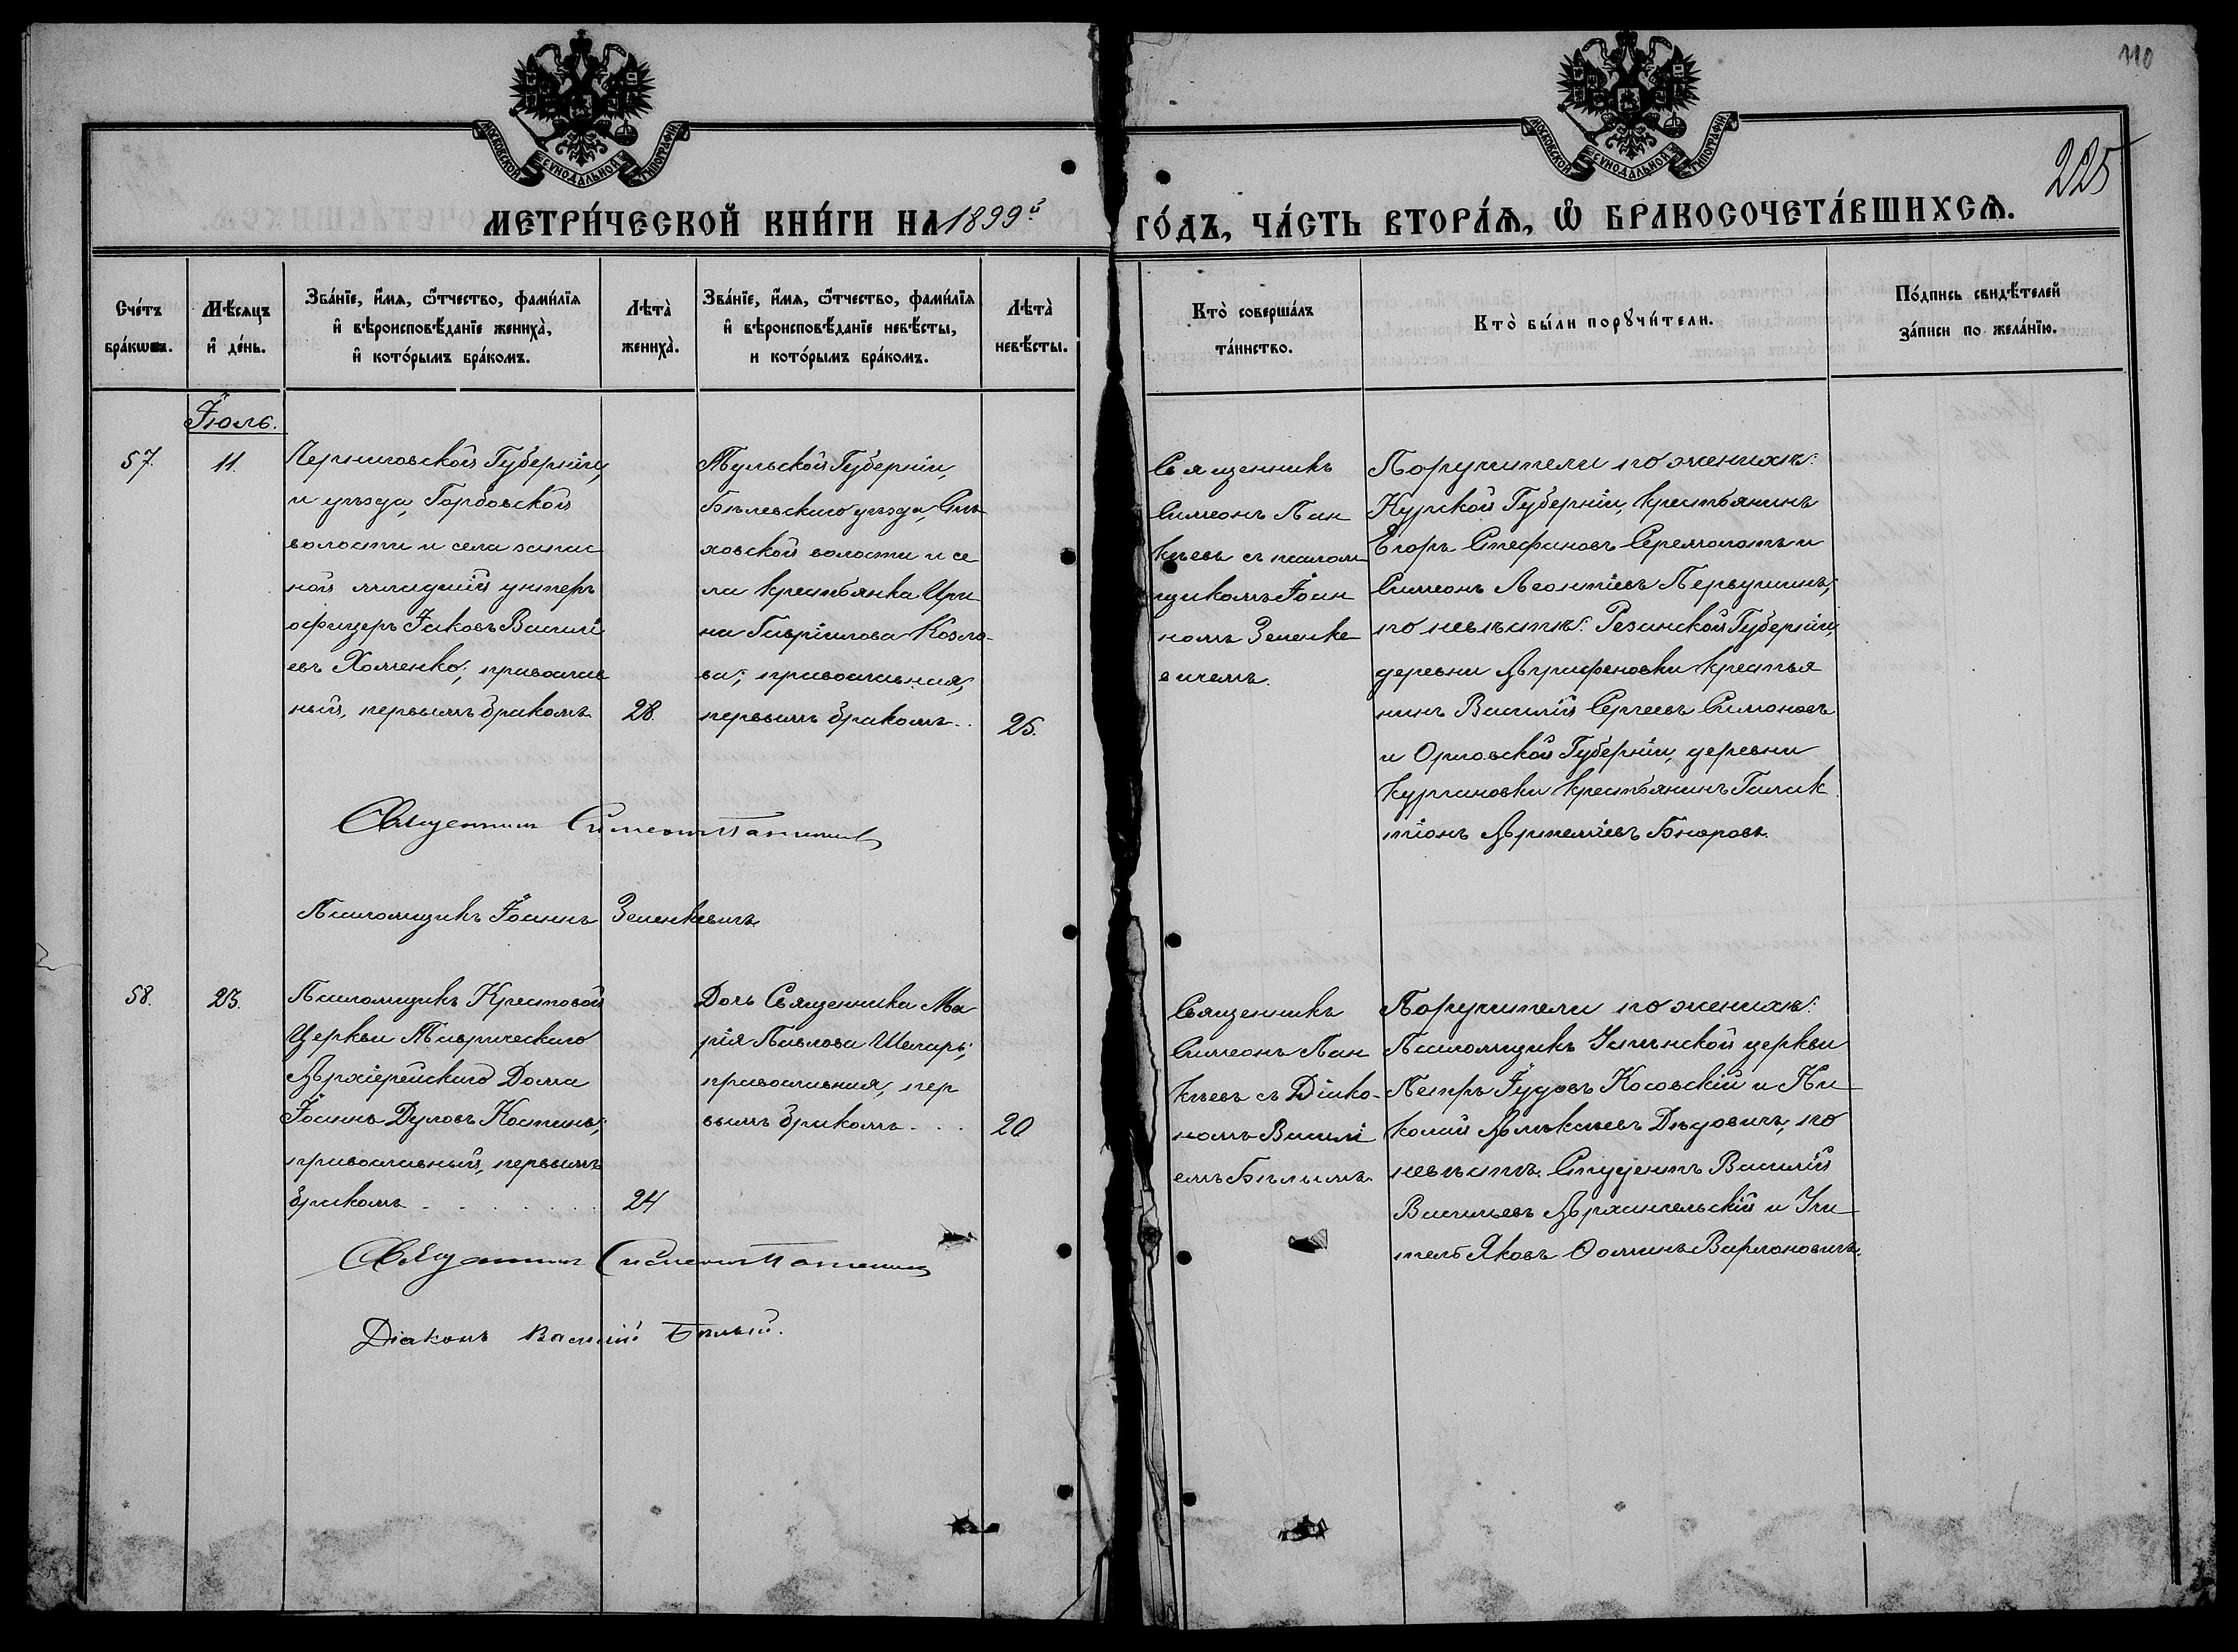 110
225
МОСКОВСКОЙ СУНОДАЛЬНОЙ ТИПОГРАФІИ
МОСКОВСКОЙ СУНОДАЛЬНОЙ ТИПОГРАФІИ
МЕТРИ́ЧЕСКОЙ КНИ́ГИ НА 1899й ГО́ДЪ, ЧА́СТЬ ВТОРА́Ѧ, Ѽ БРАКОСОЧЕТА́ВШИХСѦ.
Сче́тъ
бра́кѡвъ.
Мѣ́сяцъ
и҆ де́нь.
Зва́нїе, и҆́мѧ, ѻ҆́тчество, фами́лїѧ
и҆ вѣроисповѣ́данїе жениха̀,
и҆ кото́рымъ бра́комъ.
Лѣта̀
жениха̀.
Зва́нїе, и҆́мѧ, ѻ҆́тчество, фами́лїѧ
и҆ вѣроисповѣ́данїе невѣ́сты,
и кото́рымъ бра́комъ.
Лѣта̀
невѣ́сты.
Кто̀ соверша́лъ
та́инство.
Кто̀ бы́ли порꙋчи́тели.
По́дпись свидѣ́телей
за́писи по жела́нїю.
Іюль.
57.
11.
Черниговской Губерніи,
и уѣзда, Горбовской
волости и села запас
ной младшій унтеръ
офицеръ Іаковъ Василі
евъ Хоменко; православ
ный, первымъ бракомъ
28.
Тульской Губерніи,
Бѣлевскаго уѣзда,
ховской волости и се
ла крестьянка Ири
на Гавріилова Козло-
ва; православная,
первымъ бракомъ..
25.
Священникъ
Симеонъ Пан
кѣевъ съ псалом
щикомъ Іоан
номъ Зеленке
вичемъ.
Поручители по женихѣ:
Курской Губерніи, крестьянинъ
Егоръ Стефановъ и
Симеонъ Леонтіевъ Первушинъ;
по невѣстѣ: Рязанской Губерніи,
деревни Аграфеновки крестья
нинъ Василій Сергеевъ Симоновъ
и Орловской Губерніи, деревни
Кургановки крестьянинъ Галак
тіонъ Артемьевъ
Священникъ Симеонъ
Псаломщикъ Іоаннъ Зеленкевичъ
58.
23.
Псаломщикъ Крестовой
Церкви Таврическаго
Архіерейскаго Дома
Іоаннъ Костинъ;
православный, первымъ
бракомъ . . . . . . .
24
Дочь Священника Ма
рія Павлова Шепарь;
православная, пер
вымъ бракомъ . . .
20
Священникъ
Симеонъ Пан
кѣевъ съ Діако-
номъ Василі
емъ Бѣлымъ.
Поручители по женихѣ:
Псаломщикъ Ильинской церкви
Петръ Іудовъ Косовскій и Ни
колай Алексѣевъ Дѣдовичъ; по
невѣстѣ: Студентъ Василій
Васильевъ Архангельскій и Учи
тель Яковъ Ѳоминъ Вармановичъ.
Священникъ Симеонъ
Діаконъ Василій Бѣлый.